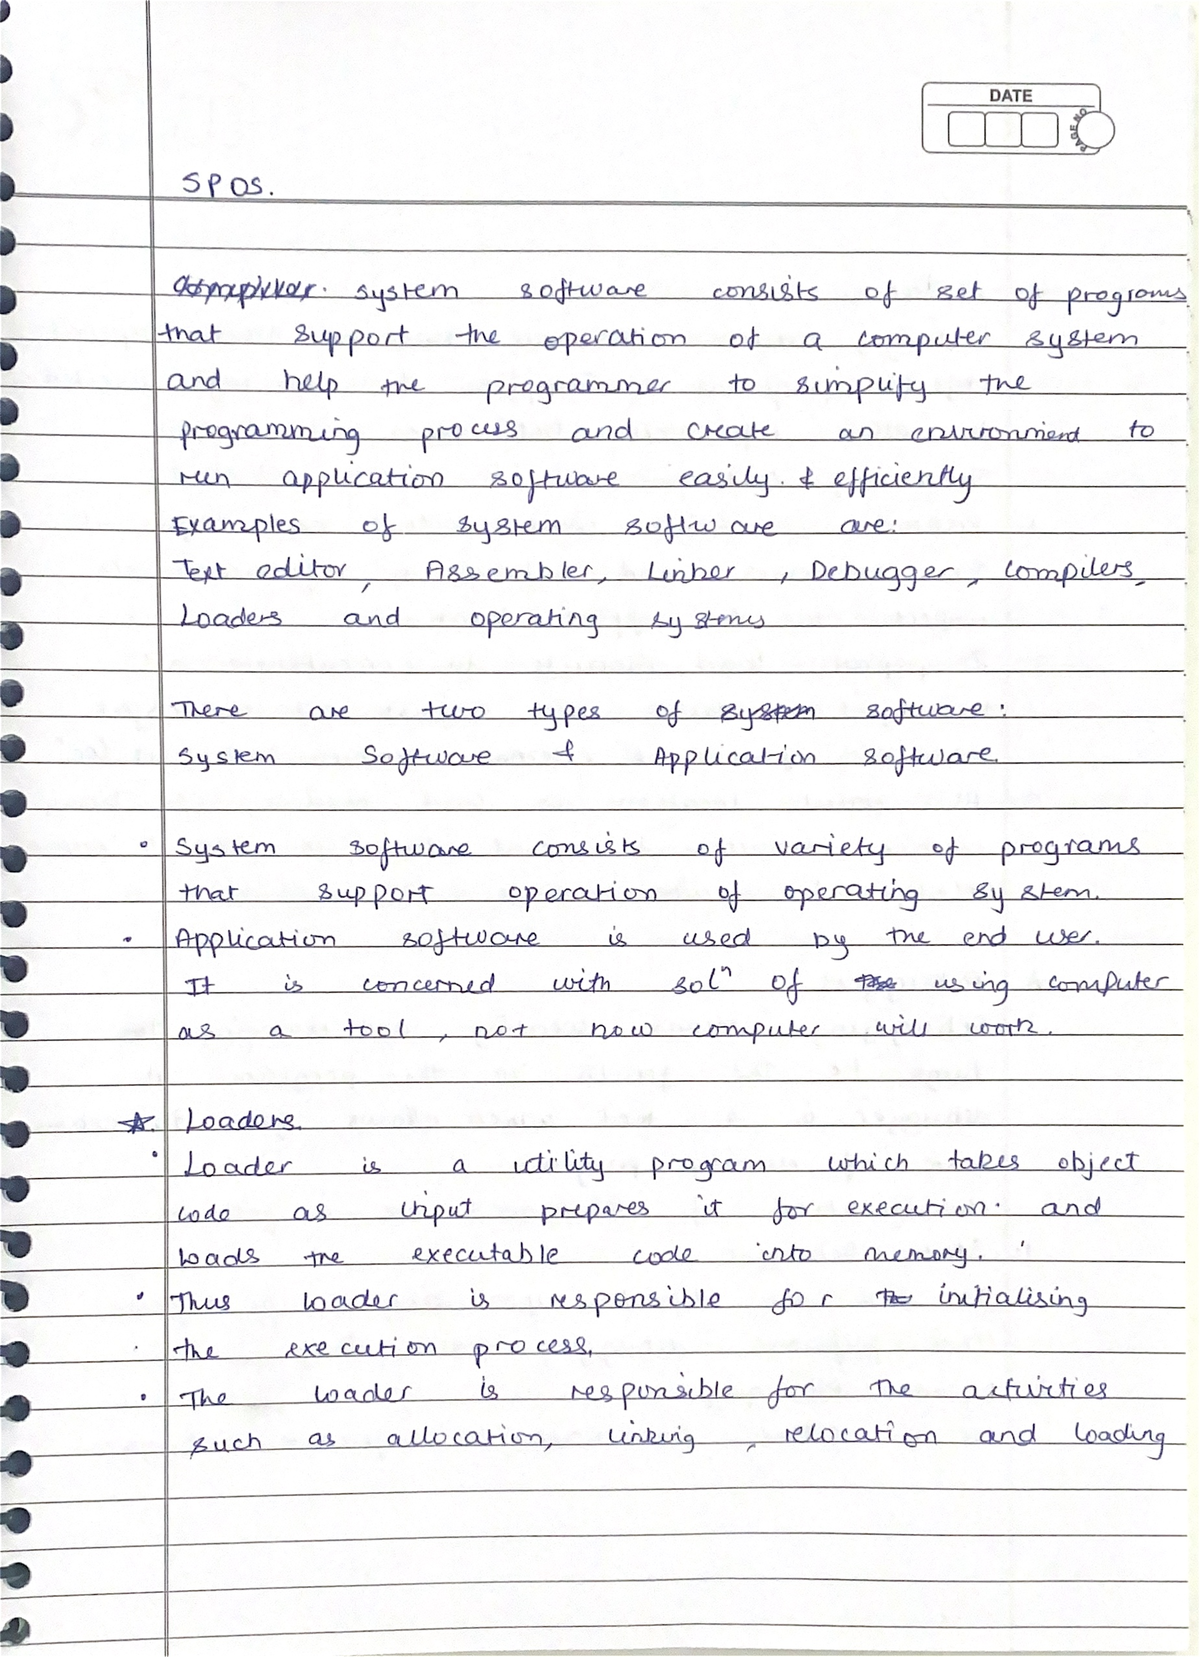 DATE
PAGE NO
SPOS.
system software consists of set of programs
that support the operation of a computer system
and help the programmer to simplify the
programming process and create an environment to
run application software easily. & efficiently
Examples of system software are:
Text editor, Assembler, Linker, Debugger, compilers,
Loaders and operating systems
There are two types of system software:
System Software & Application software.
• System software consists of variety of programs
that support operation of operating system.
• Application software is used by the end user.
It is concerned with solⁿ of using computer
as a tool, not how computer will work.
☆. Loaders.
• Loader is a utility program which takes object
code as input prepares it for execution. and
loads the executable code into memory.
• Thus loader is responsible for initialising
the execution process.
• The loader is responsible for the activities
such as allocation, linking, relocation and loading